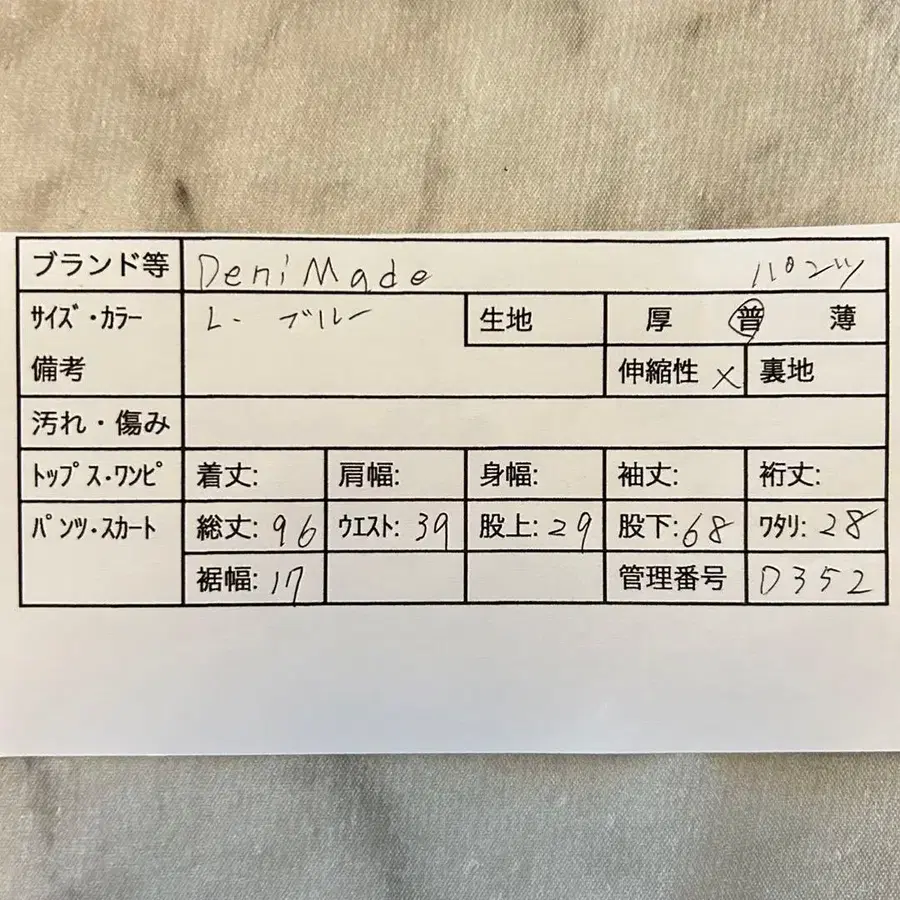 ブランド等 DeniMade パンツ
サイズ・カラー L- ブルー 生地 厚 普 薄
備考 伸縮性 × 裏地
汚れ・傷み
トップス・ワンピ 着丈: 肩幅: 身幅: 袖丈: 裄丈:
パンツ・スカート 総丈: 96 ウエスト: 39 股上: 29 股下: 68 ワタリ: 28
裾幅: 17 管理番号 D352